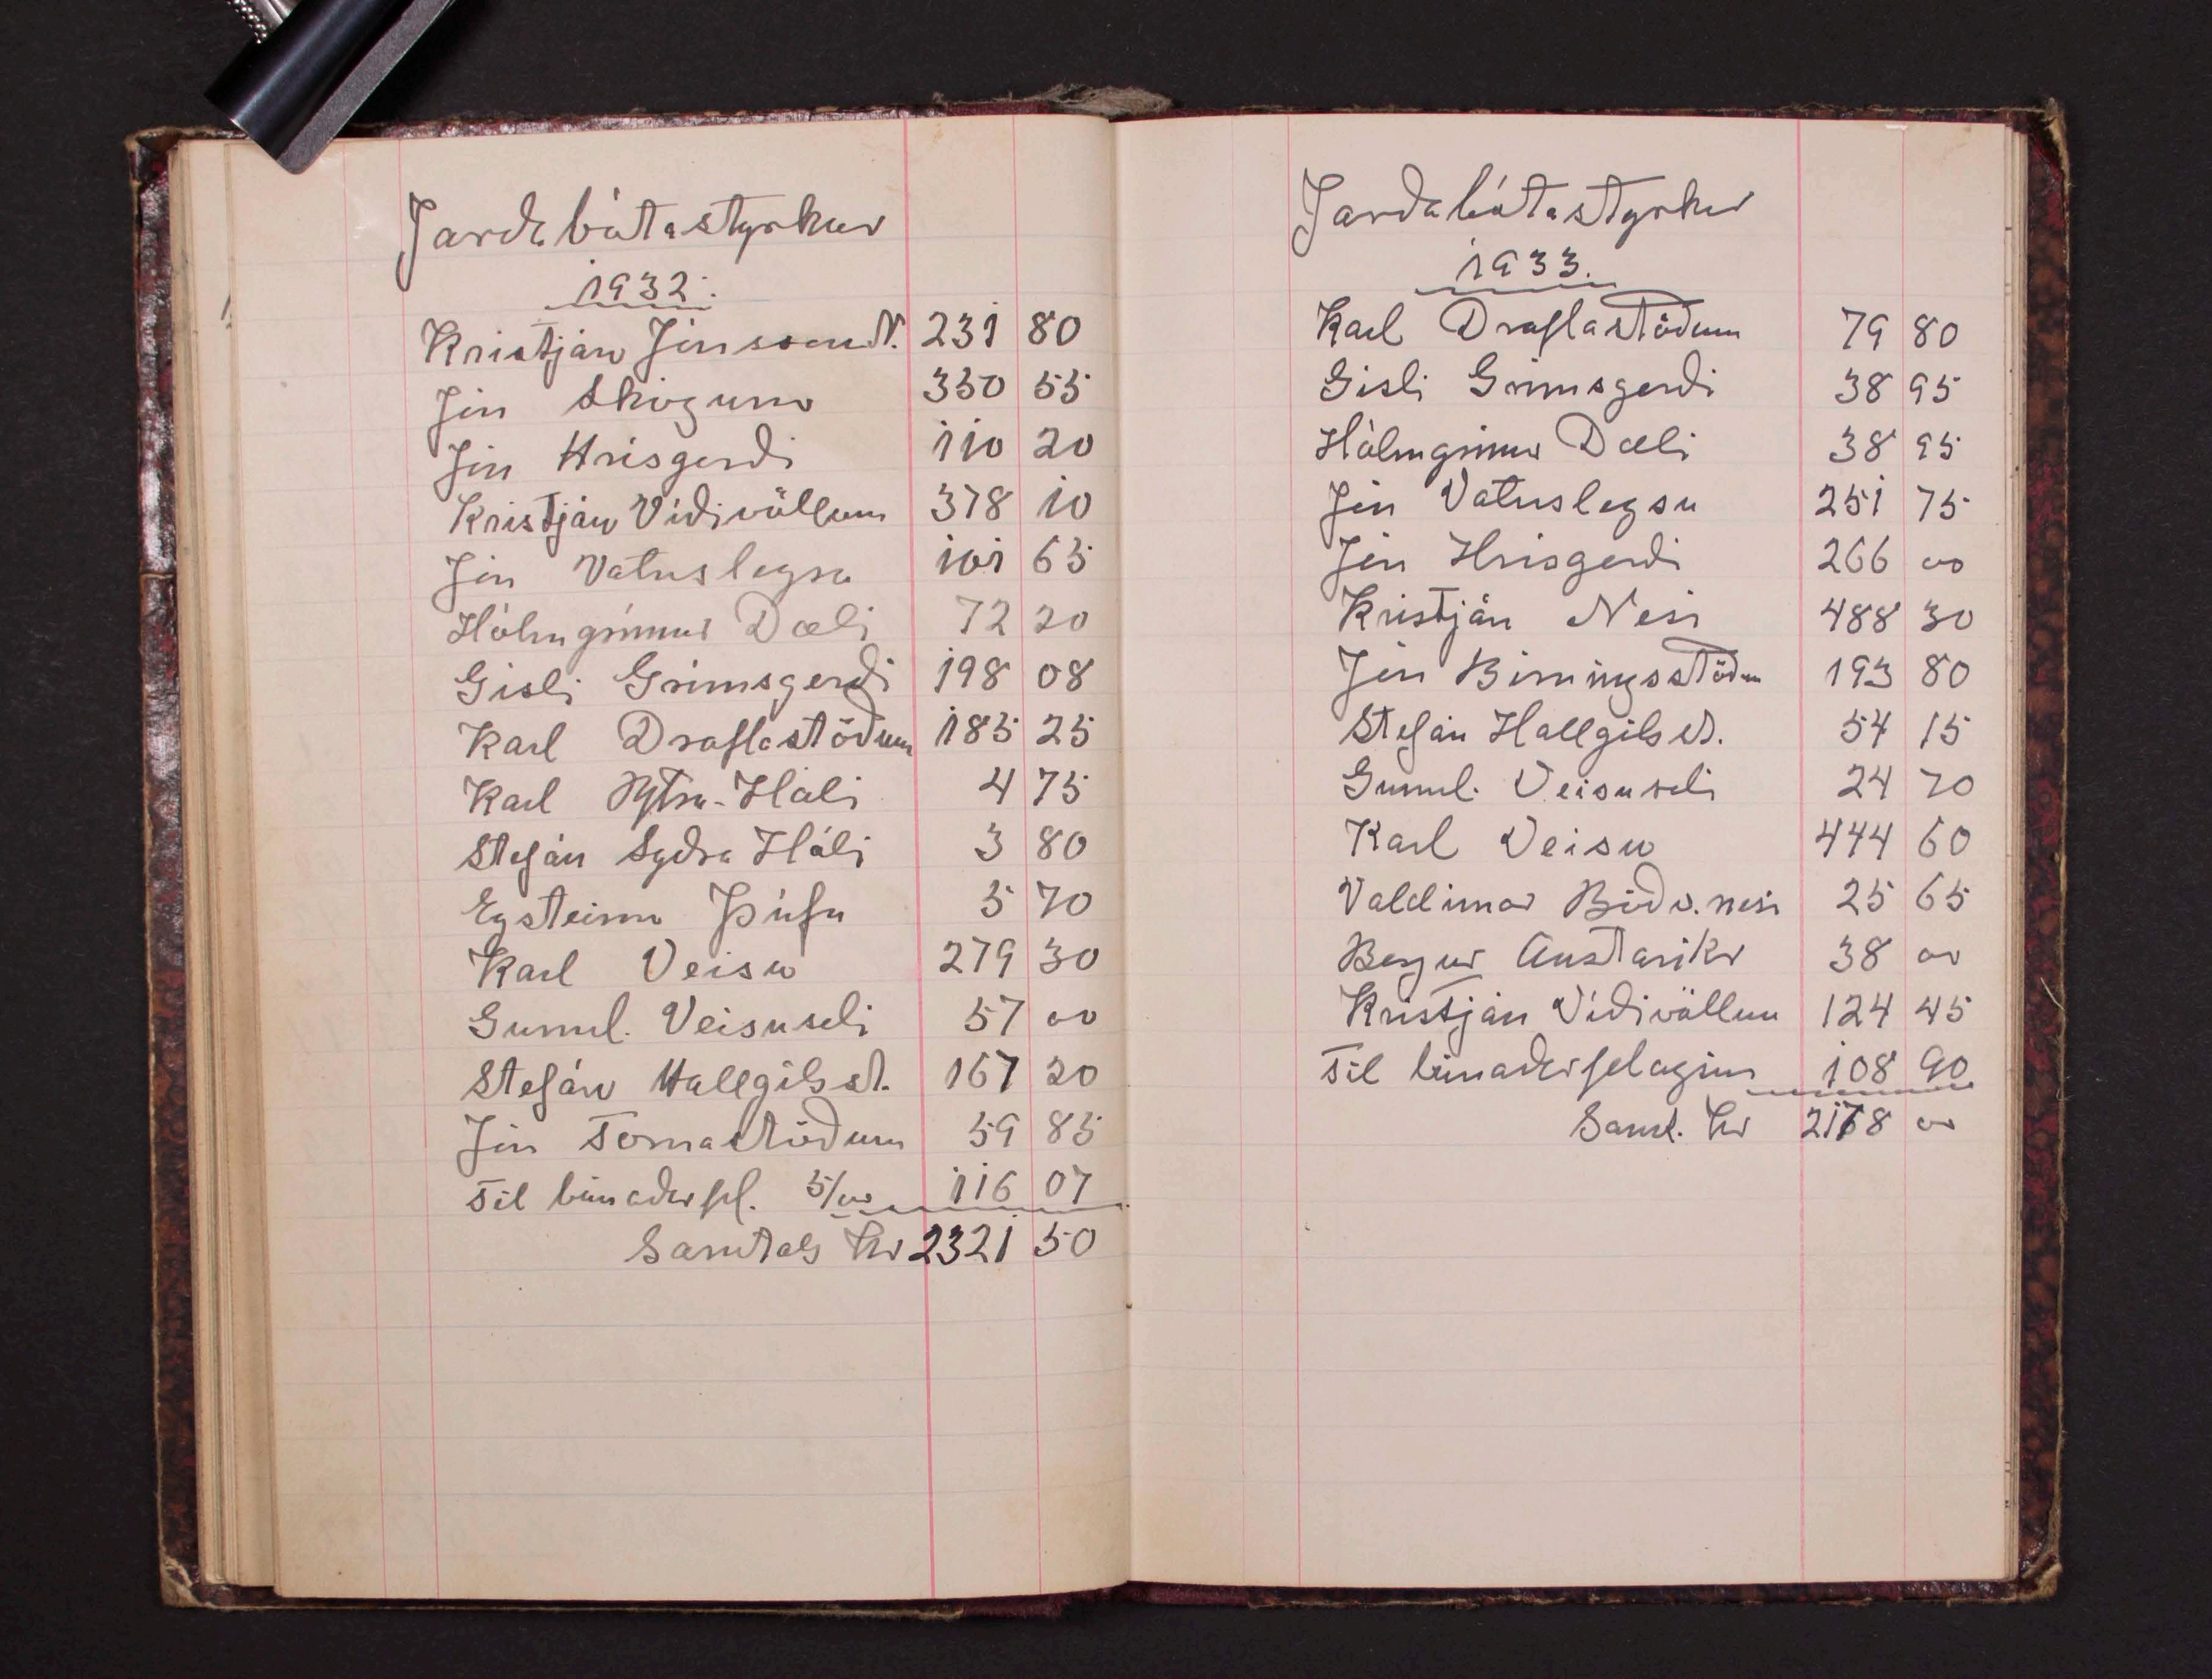 Jarðabótastyrkur
1932.
Kristján Jónsson N. 231 80
Jón Skógum 350 55
Jón Hrísgerði 110 20
Kristján Víðivöllum 378 10
Jón Vatnsleysu 101 65
Hólmgrímur Dæli 72 20
Gísli Grímsgerði 198 08
Karl Draflastöðum 185 25
Karl Ytra-Hóli 4 75
Stefán Syðra Hóli 3 80
Eysteinn Þúfu 5 70
Karl Veisu 279 30
Gunnl. Veisuseli 57 00
Stefán Hallgilsst. 167 20
Jón Tornastöðum 59 85
Til búnaðarfél. 5/00 116 07
Samtals Kr 2321 50
Jarðabótastyrkur
1933.
Karl Draflastöðum 79 80
Gísli Grímsgerði 38 95
Hólmgrímur Dæli 38 95
Jón Vatnsleysu 251 75
Jón Hrísgerði 266 00
Kristján Nesi 488 30
Jón Birningsstöðum 193 80
Stefán Hallgilsst. 54 15
Gunnl. Veisuseli 24 70
Karl Veisu 444 60
Valdimar Böðv.nesi 25 65
Bergur Austari Kr 38 00
Kristján Víðivöllum 124 45
Til búnaðarfélagsins 108 90
Samt. Kr 2178 00